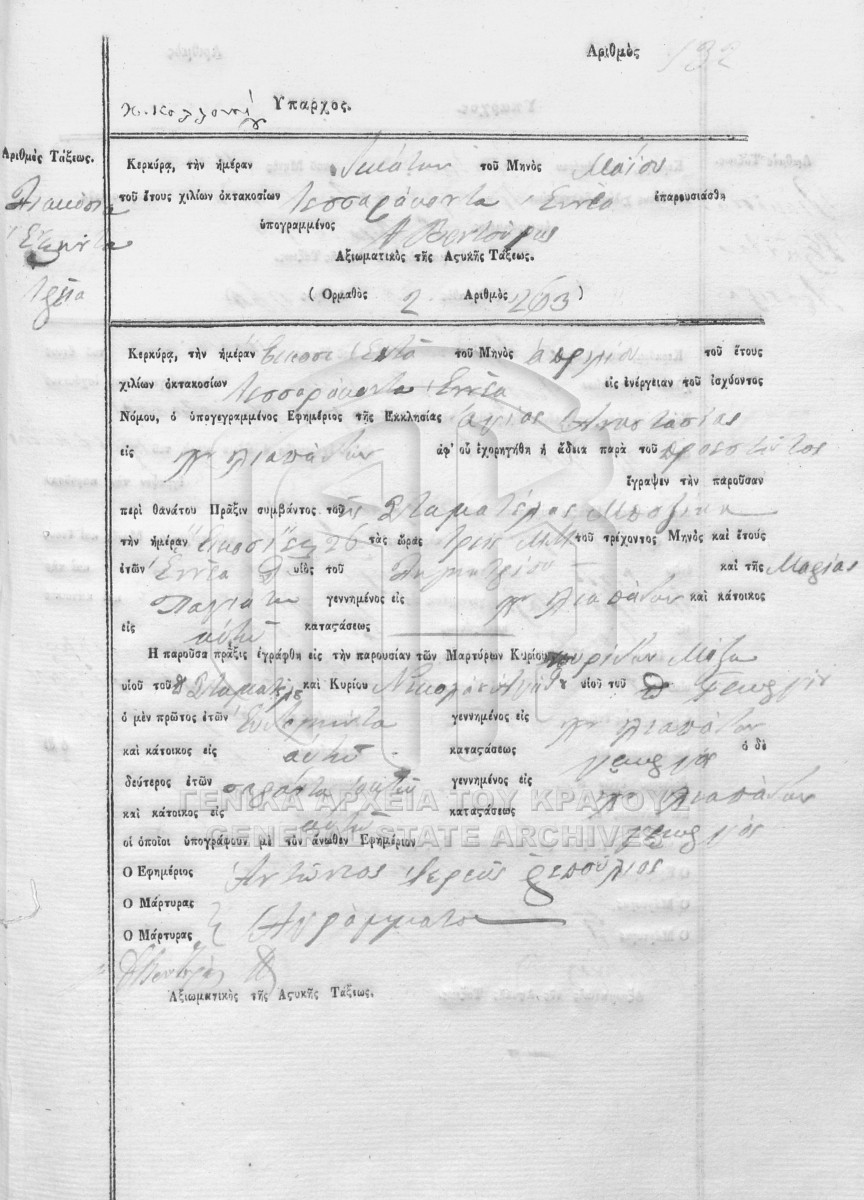 Αριθμὸς 132
Υπαρχος.
Αριθμὸς Τάξεως.
Διακόσια
Εξήντα
τρία
Κερκύρα, τὴν ἡμέραν δεκάτην τοῦ Μηνὸς Μαΐου
τοῦ ἔτους χιλίων ὀκτακοσίων τεσσαράκοντα Εννέα ἐπαρουσιάσθη
ὑπογραμμένος
Αξιωματικὸς τῆς Αςυκῆς Τάξεως.
( Ορμαθὸς 2 Αριθμὸς 263 )
Κερκύρα, τὴν ἡμέραν εικοσι Επτὰ τοῦ Μηνὸς απριλίου τοῦ ἔτους
χιλίων ὀκτακοσίων τεσσαράκοντα Εννέα εἰς ἐνέργειαν τοῦ ἰσχύοντος
Νόμου, ὁ ὑπογεγραμμένος Εφημέριος τῆς Εκκλησίας αγίας Αναστασίας
εἰς λιαπάδων ἀφ' οὗ ἐχορηγήθη ἡ ἄδεια παρὰ τοῦ προεστῶτος
ἔγραψεν τὴν παροῦσαν
περὶ θανάτου Πρᾶξιν συμβάντος τοῦ της Σταματέλας
τὴν ἡμέραν εικοσι εξ 26 τὰς ὥρας τρεις Μ.Μ. τοῦ τρέχοντος Μηνὸς καὶ ἔτους
ἐτῶν Εννέα υἱὸς τοῦ Δημητρίου καὶ τῆς Μαρίας
γεννημένος εἰς λιαπάδων καὶ κάτοικος
εἰς αὐτῶ καταςάσεως
Η παροῦσα πρᾶξις ἐγράφθη εἰς τὴν παρουσίαν τῶν Μαρτύρων Κυρίου σπυρίδων
υἱοῦ τοῦ Σταματέλου καὶ Κυρίου Νικολάου υἱοῦ τοῦ Γεωργίου
ὁ μὲν πρῶτος ἐτῶν γεννημένος εἰς λιαπάδων
καὶ κάτοικος εἰς αὐτῶ καταςάσεως γεωργός ὁ δὲ
δεύτερος ἐτῶν σαράντα γεννημένος εἰς λιαπάδων
καὶ κάτοικος εἰς αὐτῶ καταςάσεως γεωργός
οἱ ὁποῖοι ὑπογράφουν μὲ τὸν ἄνωθεν Εφημέριον
Ο Εφημέριος Αντώνιος Ιερεῦς
Ο Μάρτυρας
Ο Μάρτυρας Αγράμματοι
Αξιωματικὸς τῆς Αςυκῆς Τάξεως.
ΓΕΝΙΚΑ ΑΡΧΕΙΑ ΤΟΥ ΚΡΑΤΟΥΣ
GENERAL STATE ARCHIVES